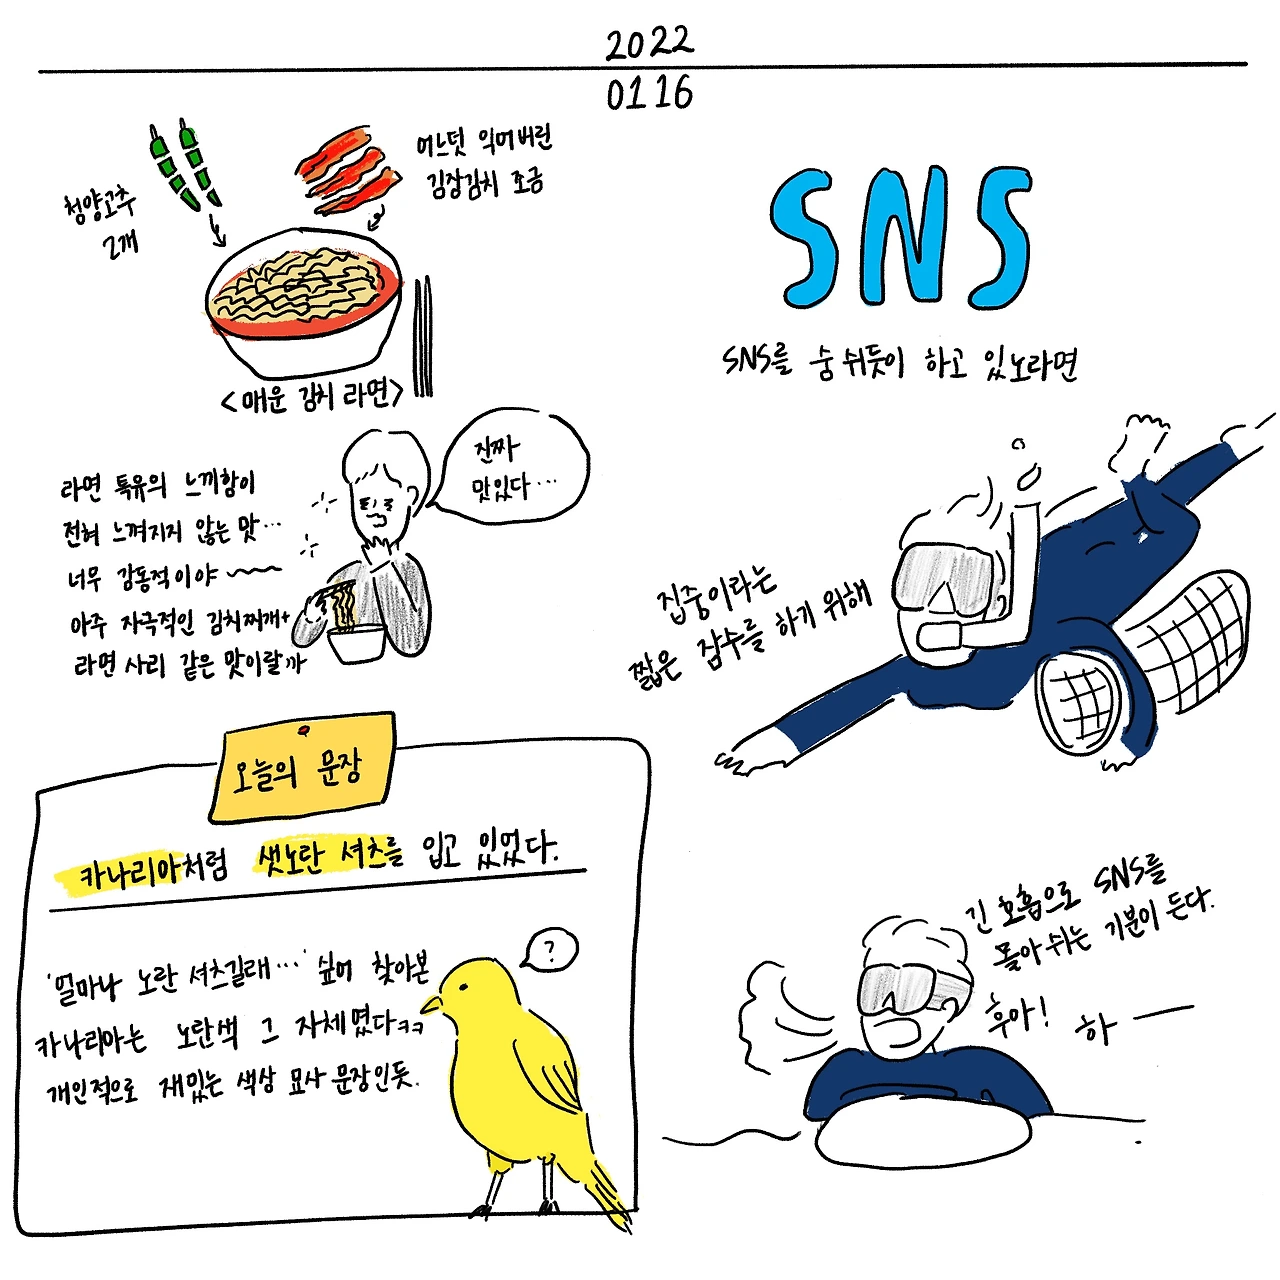 2022
01 16
청양고추
2개
어느덧 익어버린
김장김치 조금
<매운 김치 라면>
진짜
맛있다...
라면 특유의 느끼함이
전혀 느껴지지 않는 맛...
너무 감동적이야~~
아주 자극적인 김치찌개+
라면 사리 같은 맛이랄까
오늘의 문장
카나리아처럼 샛노란 셔츠를 입고 있었다.
'얼마나 노란 셔츠길래...' 싶어 찾아본
카나리아는 노란색 그 자체였다ㅋㅋ
개인적으로 재밌는 색상 묘사 문장인듯.
?
SNS
SNS를 숨 쉬듯이 하고 있노라면
집중이라는
짧은 잠수를 하기 위해
긴 호흡으로 SNS를
몰아 쉬는 기분이 든다.
후아! 하 —